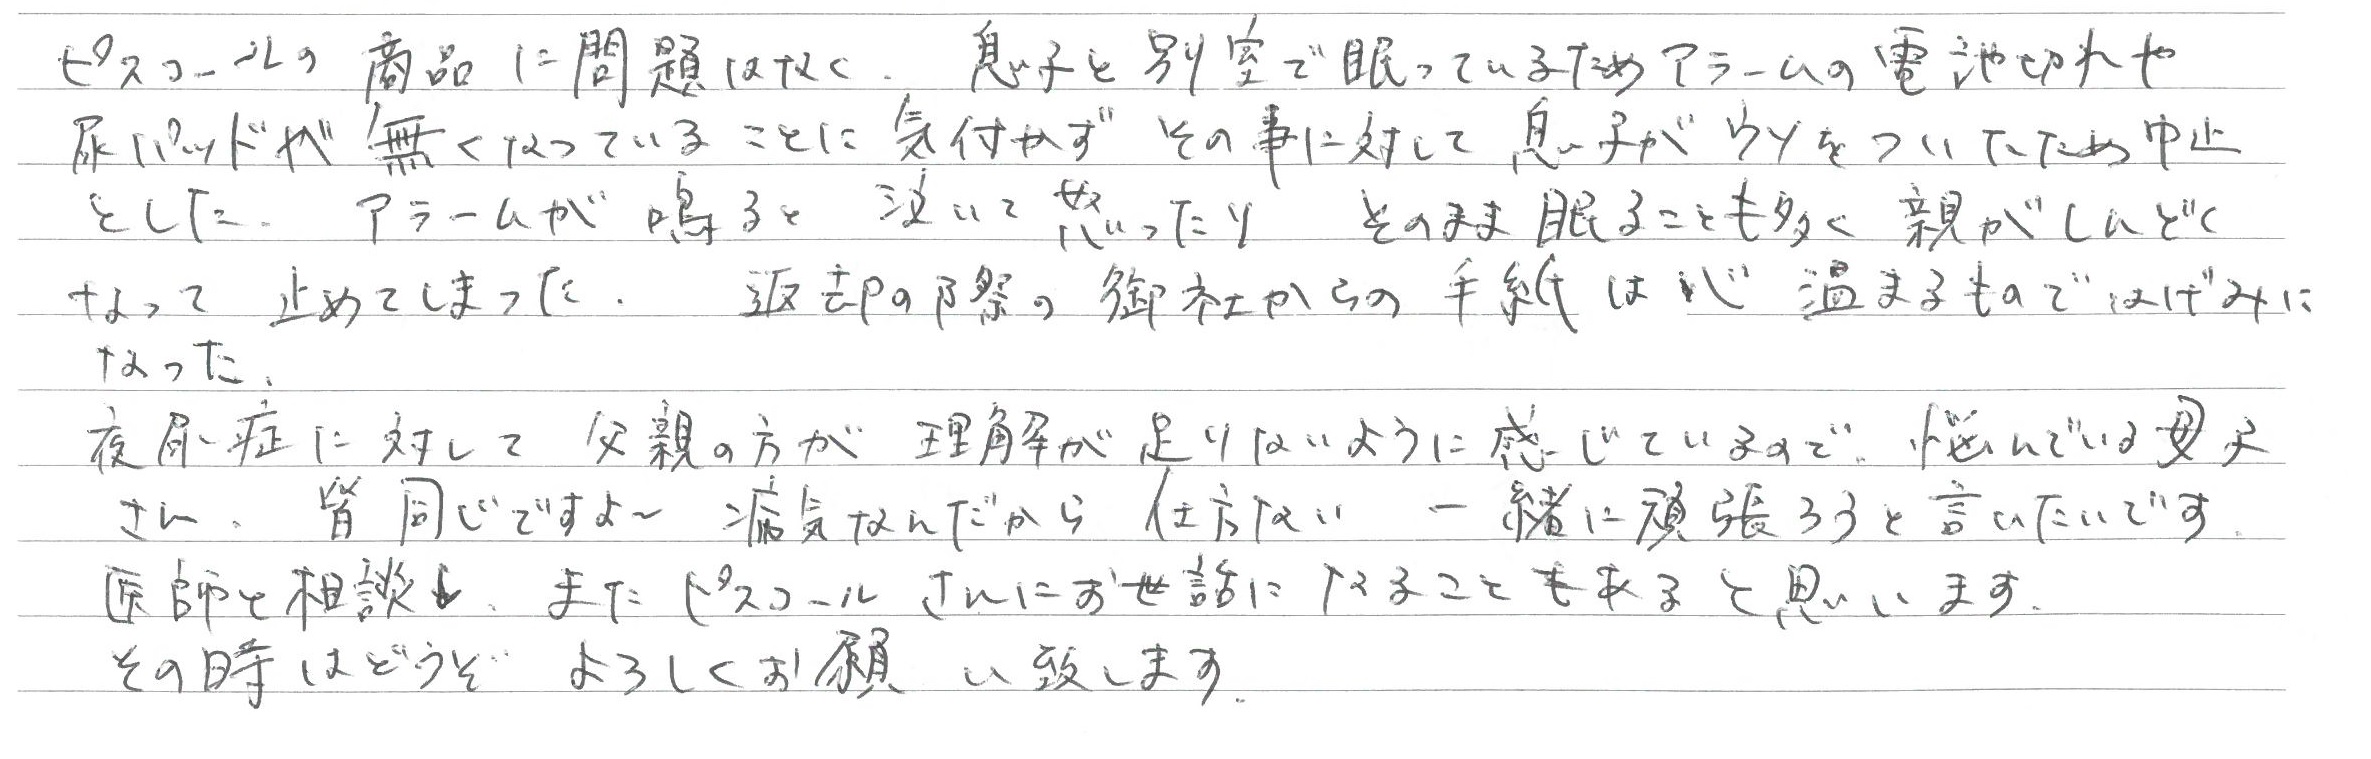 ピスコールの商品に問題はなく、息子と別室で眠っているためアラームの電池切れや
尿パッドが無くなっていることに気付かずその事に対して息子がウソをついたため中止
とした。アラームが鳴ると泣いて怒ったりそのまま眠ることも多く親がしんどく
なって止めてしまった。返却の際の御社からの手紙は心温まるものではげみに
なった。
夜尿症に対して父親の方が理解が足りないように感じているので、悩んでいる母父
さん、皆同じですよ～病気なんだから仕方ない一緒に頑張ろうと言いたいです。
医師と相談し、またピスコールさんにお世話になることもあると思います。
その時はどうぞよろしくお願い致します。